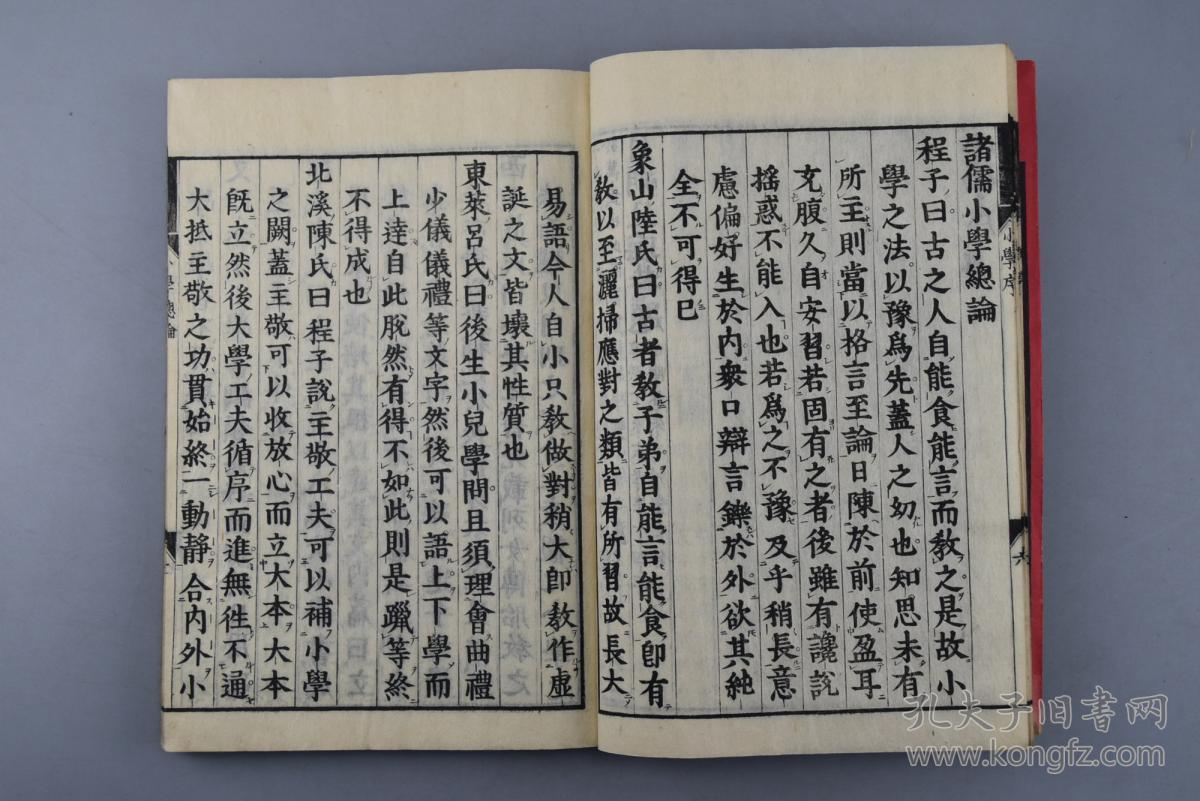 諸儒小學總論
程子曰古之人自能食能言而教之是故小
學之法以豫爲先蓋人之幼也知思未有
所主則當以格言至論日陳於前使盈耳
充腹久自安習若固有之者後雖有讒說
搖惑不能入也若爲之不豫及乎稍長意
慮偏好生於內衆口辯言鑠於外欲其純
全不可得已
象山陸氏曰古者教子弟自能言能食卽有
教以至灑掃應對之類皆有所習故長大
易語今人自小只教做對稍大卽教作虛
誕之文皆壞其性質也
東萊呂氏曰後生小兒學問且須理會曲禮
少儀儀禮等文字然後可以語上下學而
上達自此脫然有得不如此則是躐等終
不得成也
北溪陳氏曰程子說主敬工夫可以補小學
之闕蓋主敬可以收放心而立大本大本
旣立然後大學工夫循序而進無徃不通
大抵主敬之功貫始終一動靜合內外小
小學序
六
學總論
孔夫子旧书网
www.kongfz.com